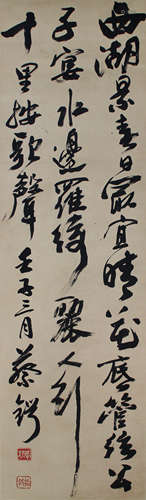 西湖景春日最宜晴花底管絃公
子宴水邊羅綺麗人行
十里按歌聲 壬子三月 蔡鍔